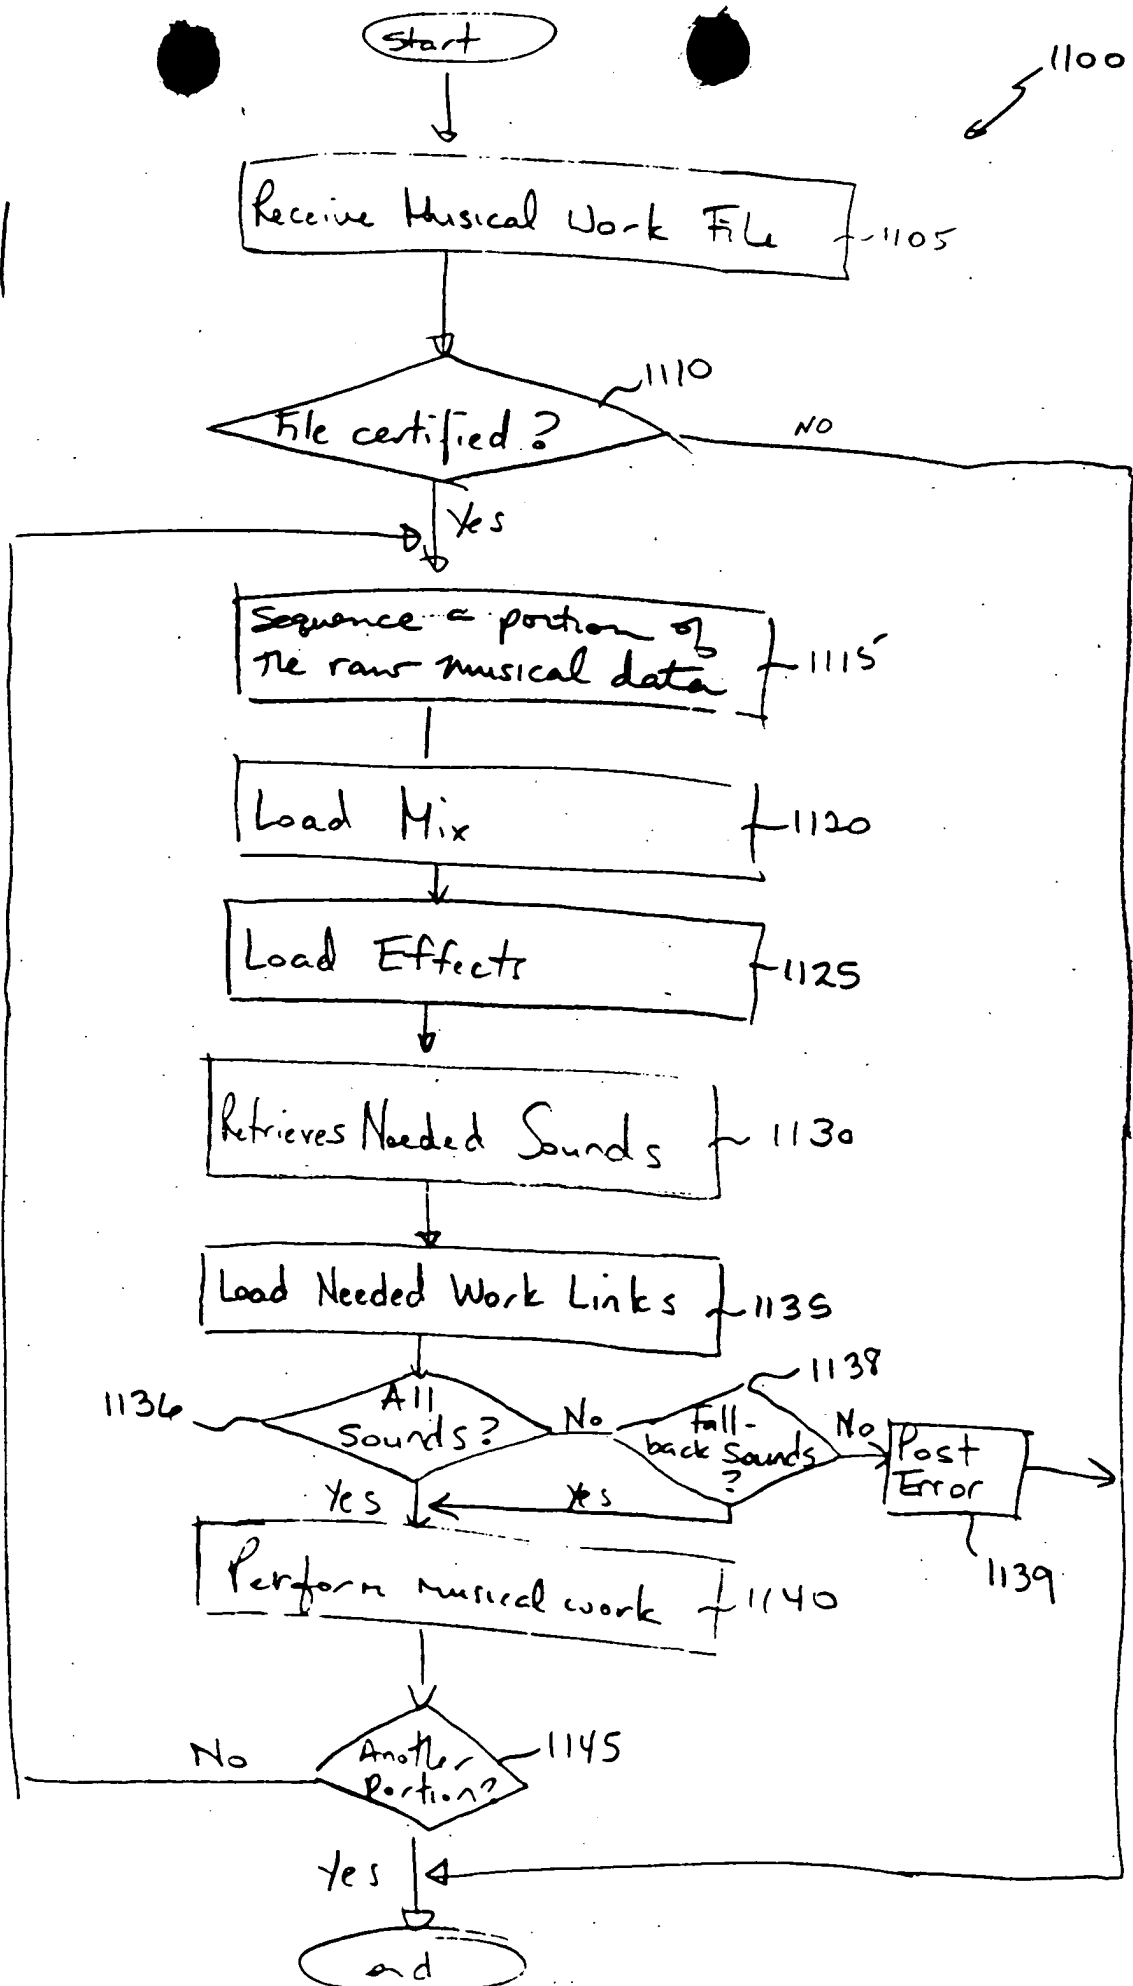 Start
1100
Receive Musical Work File
1105
1110
File certified?
NO
Yes
Sequence a portion of
the raw musical data
1115
Load Mix
1120
Load Effects
1125
Retrieves Needed Sounds
1130
Load Needed Work Links
1135
1138
1136
All
Sounds?
No
Fall-
back Sounds
?
No
Post
Error
Yes
Yes
1139
Perform musical work
1140
Another
Portion?
1145
No
Yes
end